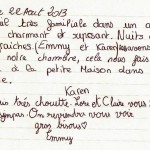 22 Août 2013
très familiale dans un
charmant et reposant. Nuits
fraîches (Emmy et Karen
notre chambre, cela nous fait
à la petite Maison dans
Karen
très chouette. Lore et Claire vous
sympas. On reviendra vous voir
gros bisous
Emmy